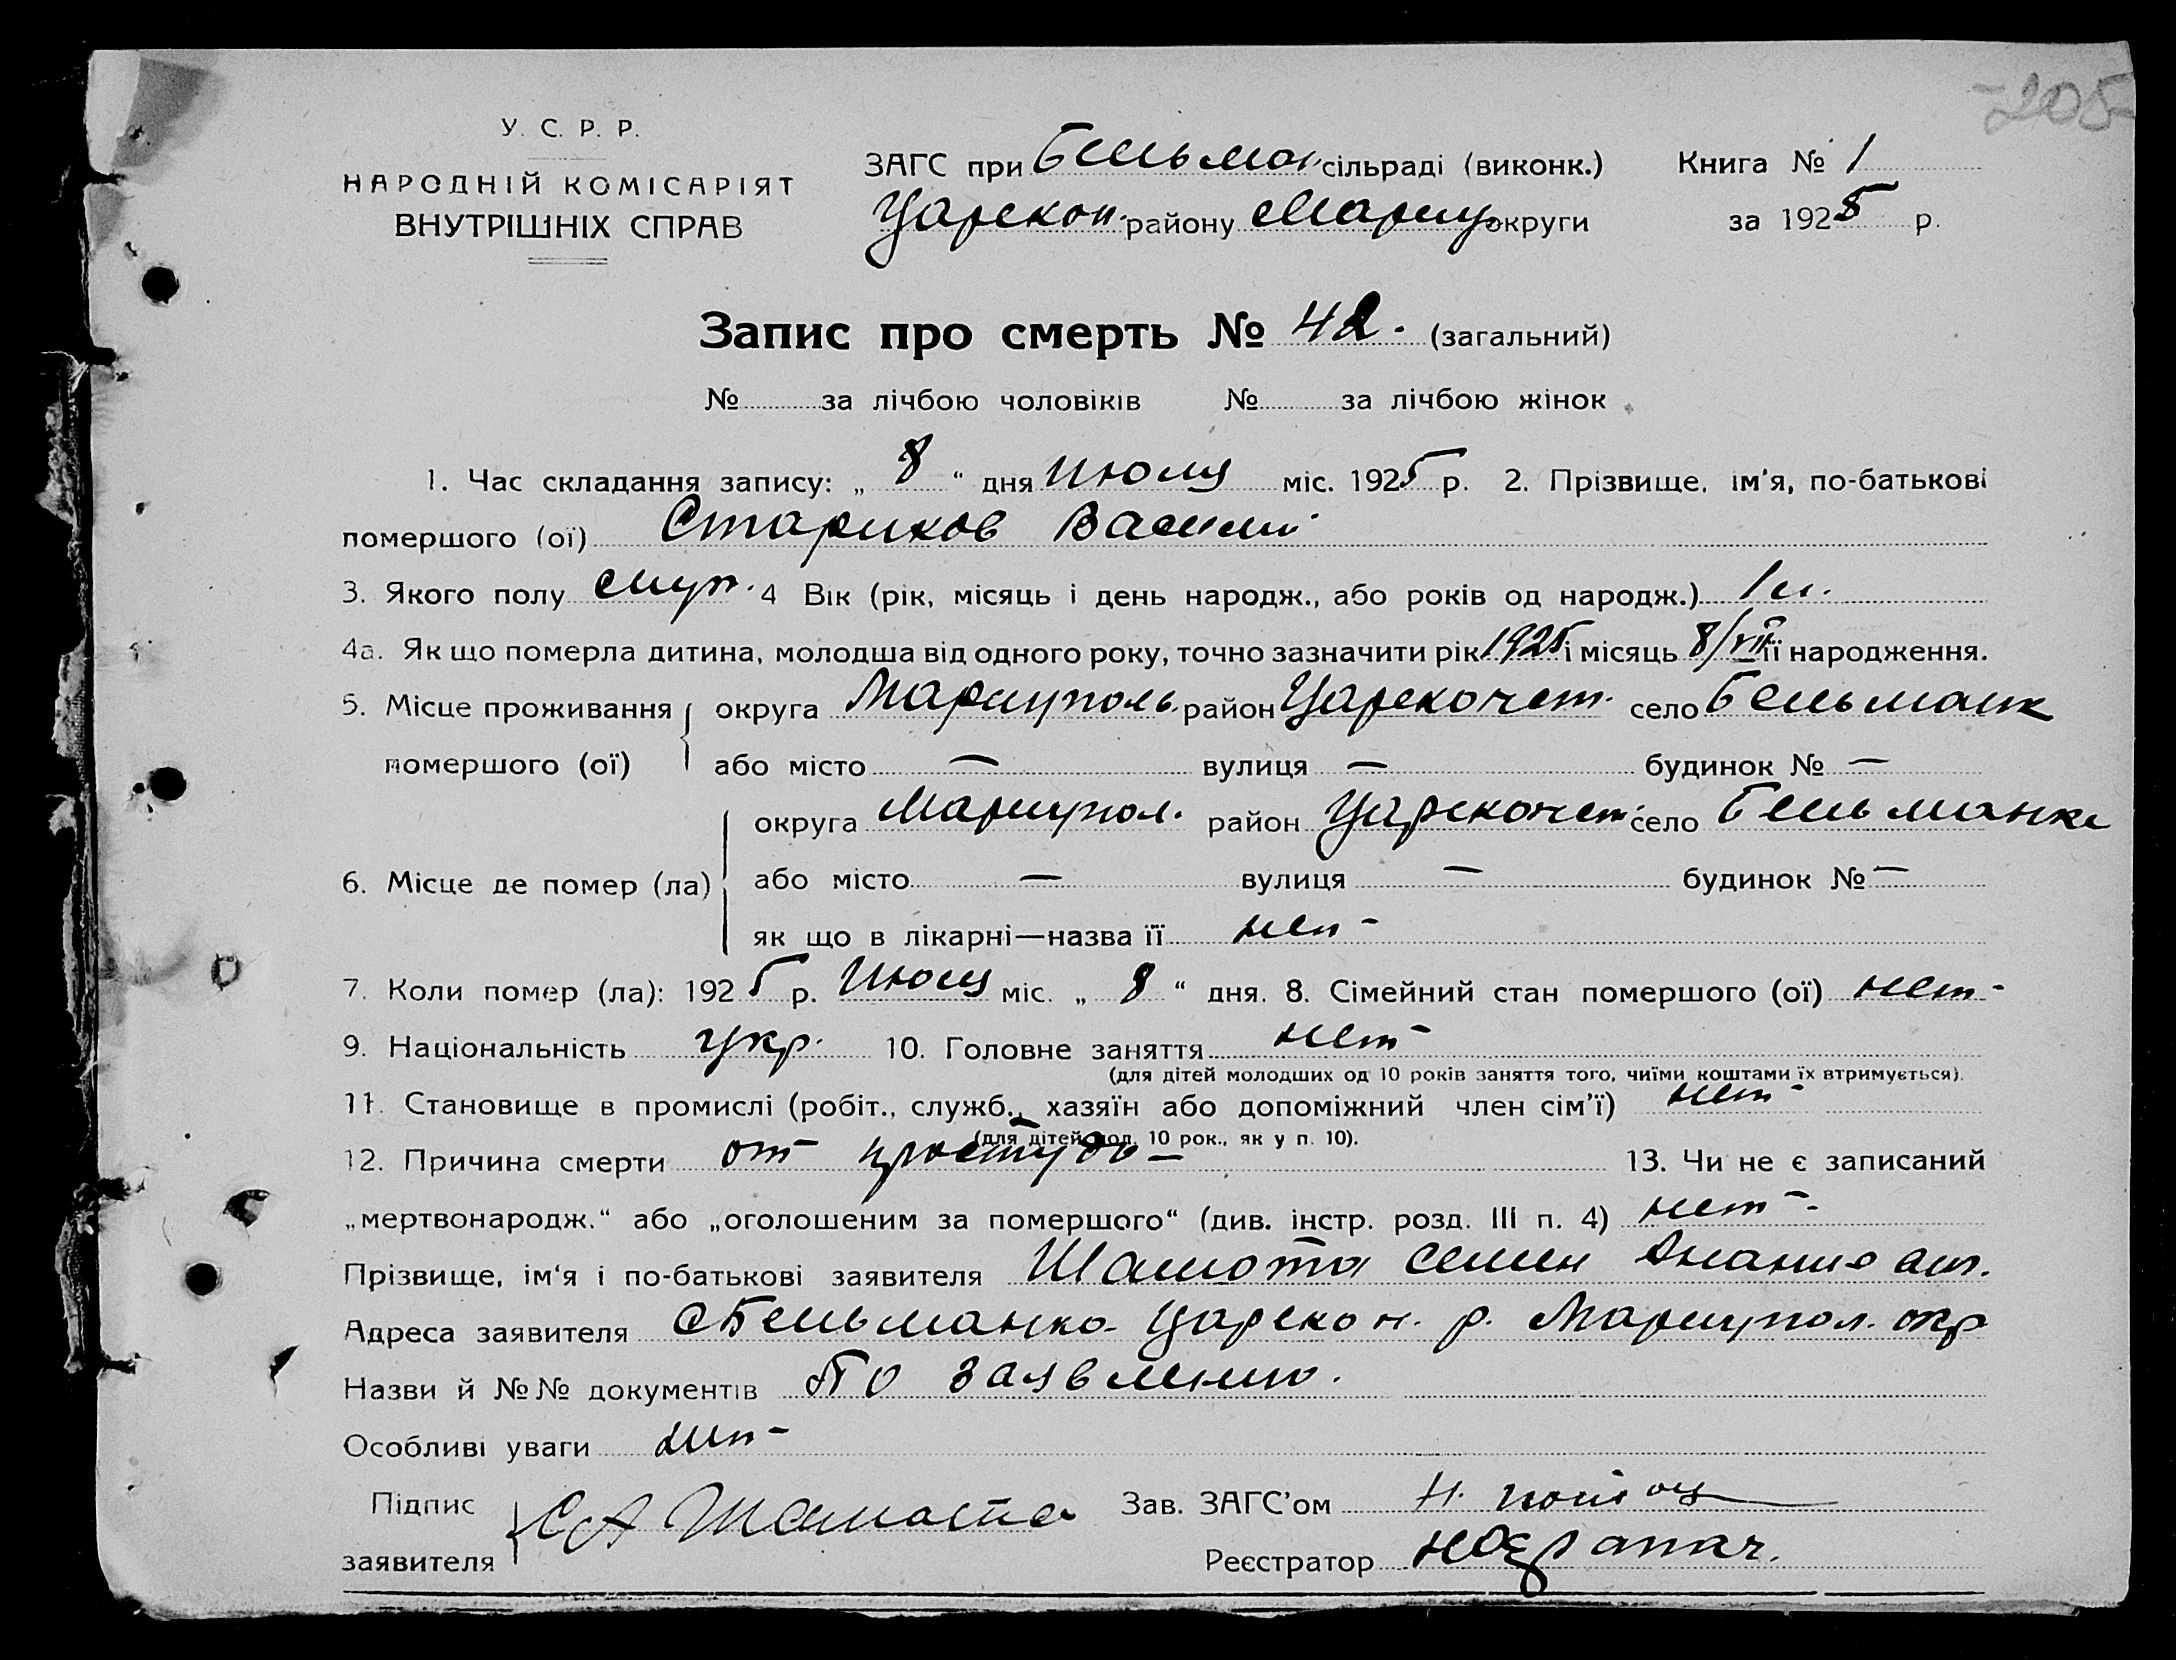 205
У. С. Р. Р.
НАРОДНІЙ КОМІСАРІЯТ
ВНУТРІШНІХ СПРАВ
ЗАГС при Бельман. сільраді (виконк.) Книга № 1
Царекон. району Мариу округи за 1925 р.
Запис про смерть № 42. (загальний)
№ за лічбою чоловіків № за лічбою жінок
1. Час складання запису: „ 8 “ дня Июля міс. 1925 р. 2. Прізвище, ім'я, по-батькові
помершого (ої) Стариков Василий
3. Якого полу муж. 4 Вік (рік, місяць і день народж., або років од народж.) 1 м.
4а. Як що померла дитина, молодша від одного року, точно зазначити рік 1925 і місяць 8/VII її народження.
5. Місце проживання округа Мариуполь. район Царекочет. село Бельманк
помершого (ої) або місто — вулиця — будинок № —
округа Мариупол. район Царекочет. село Бельманке
6. Місце де помер (ла) або місто — вулиця — будинок № —
як що в лікарні—назва її нет -
7. Коли помер (ла): 1925 р. Июля міс. „ 8 “ дня. 8. Сімейний стан помершого (ої) нет -
9. Національність укр. 10. Головне заняття нет -
(для дітей молодших од 10 років заняття того, чиїми коштами їх втримується).
11. Становище в промислі (робіт., служб., хазяїн або допоміжний член сім'ї) нет -
(для дітей мол. 10 рок., як у п. 10).
12. Причина смерти от простуды — 13. Чи не є записаний
„мертвонародж.“ або „оголошеним за помершого“ (див. інстр. розд. III п. 4) нет -
Прізвище, ім'я і по-батькові заявителя Шамота Семен
Адреса заявителя с Бельманка Царекон. р. Мариупол. окр
Назви й №№ документів По заявлению.
Особливі уваги нет -
Підпис С А Шамота Зав. ЗАГС'ом Н.
заявителя Реєстратор